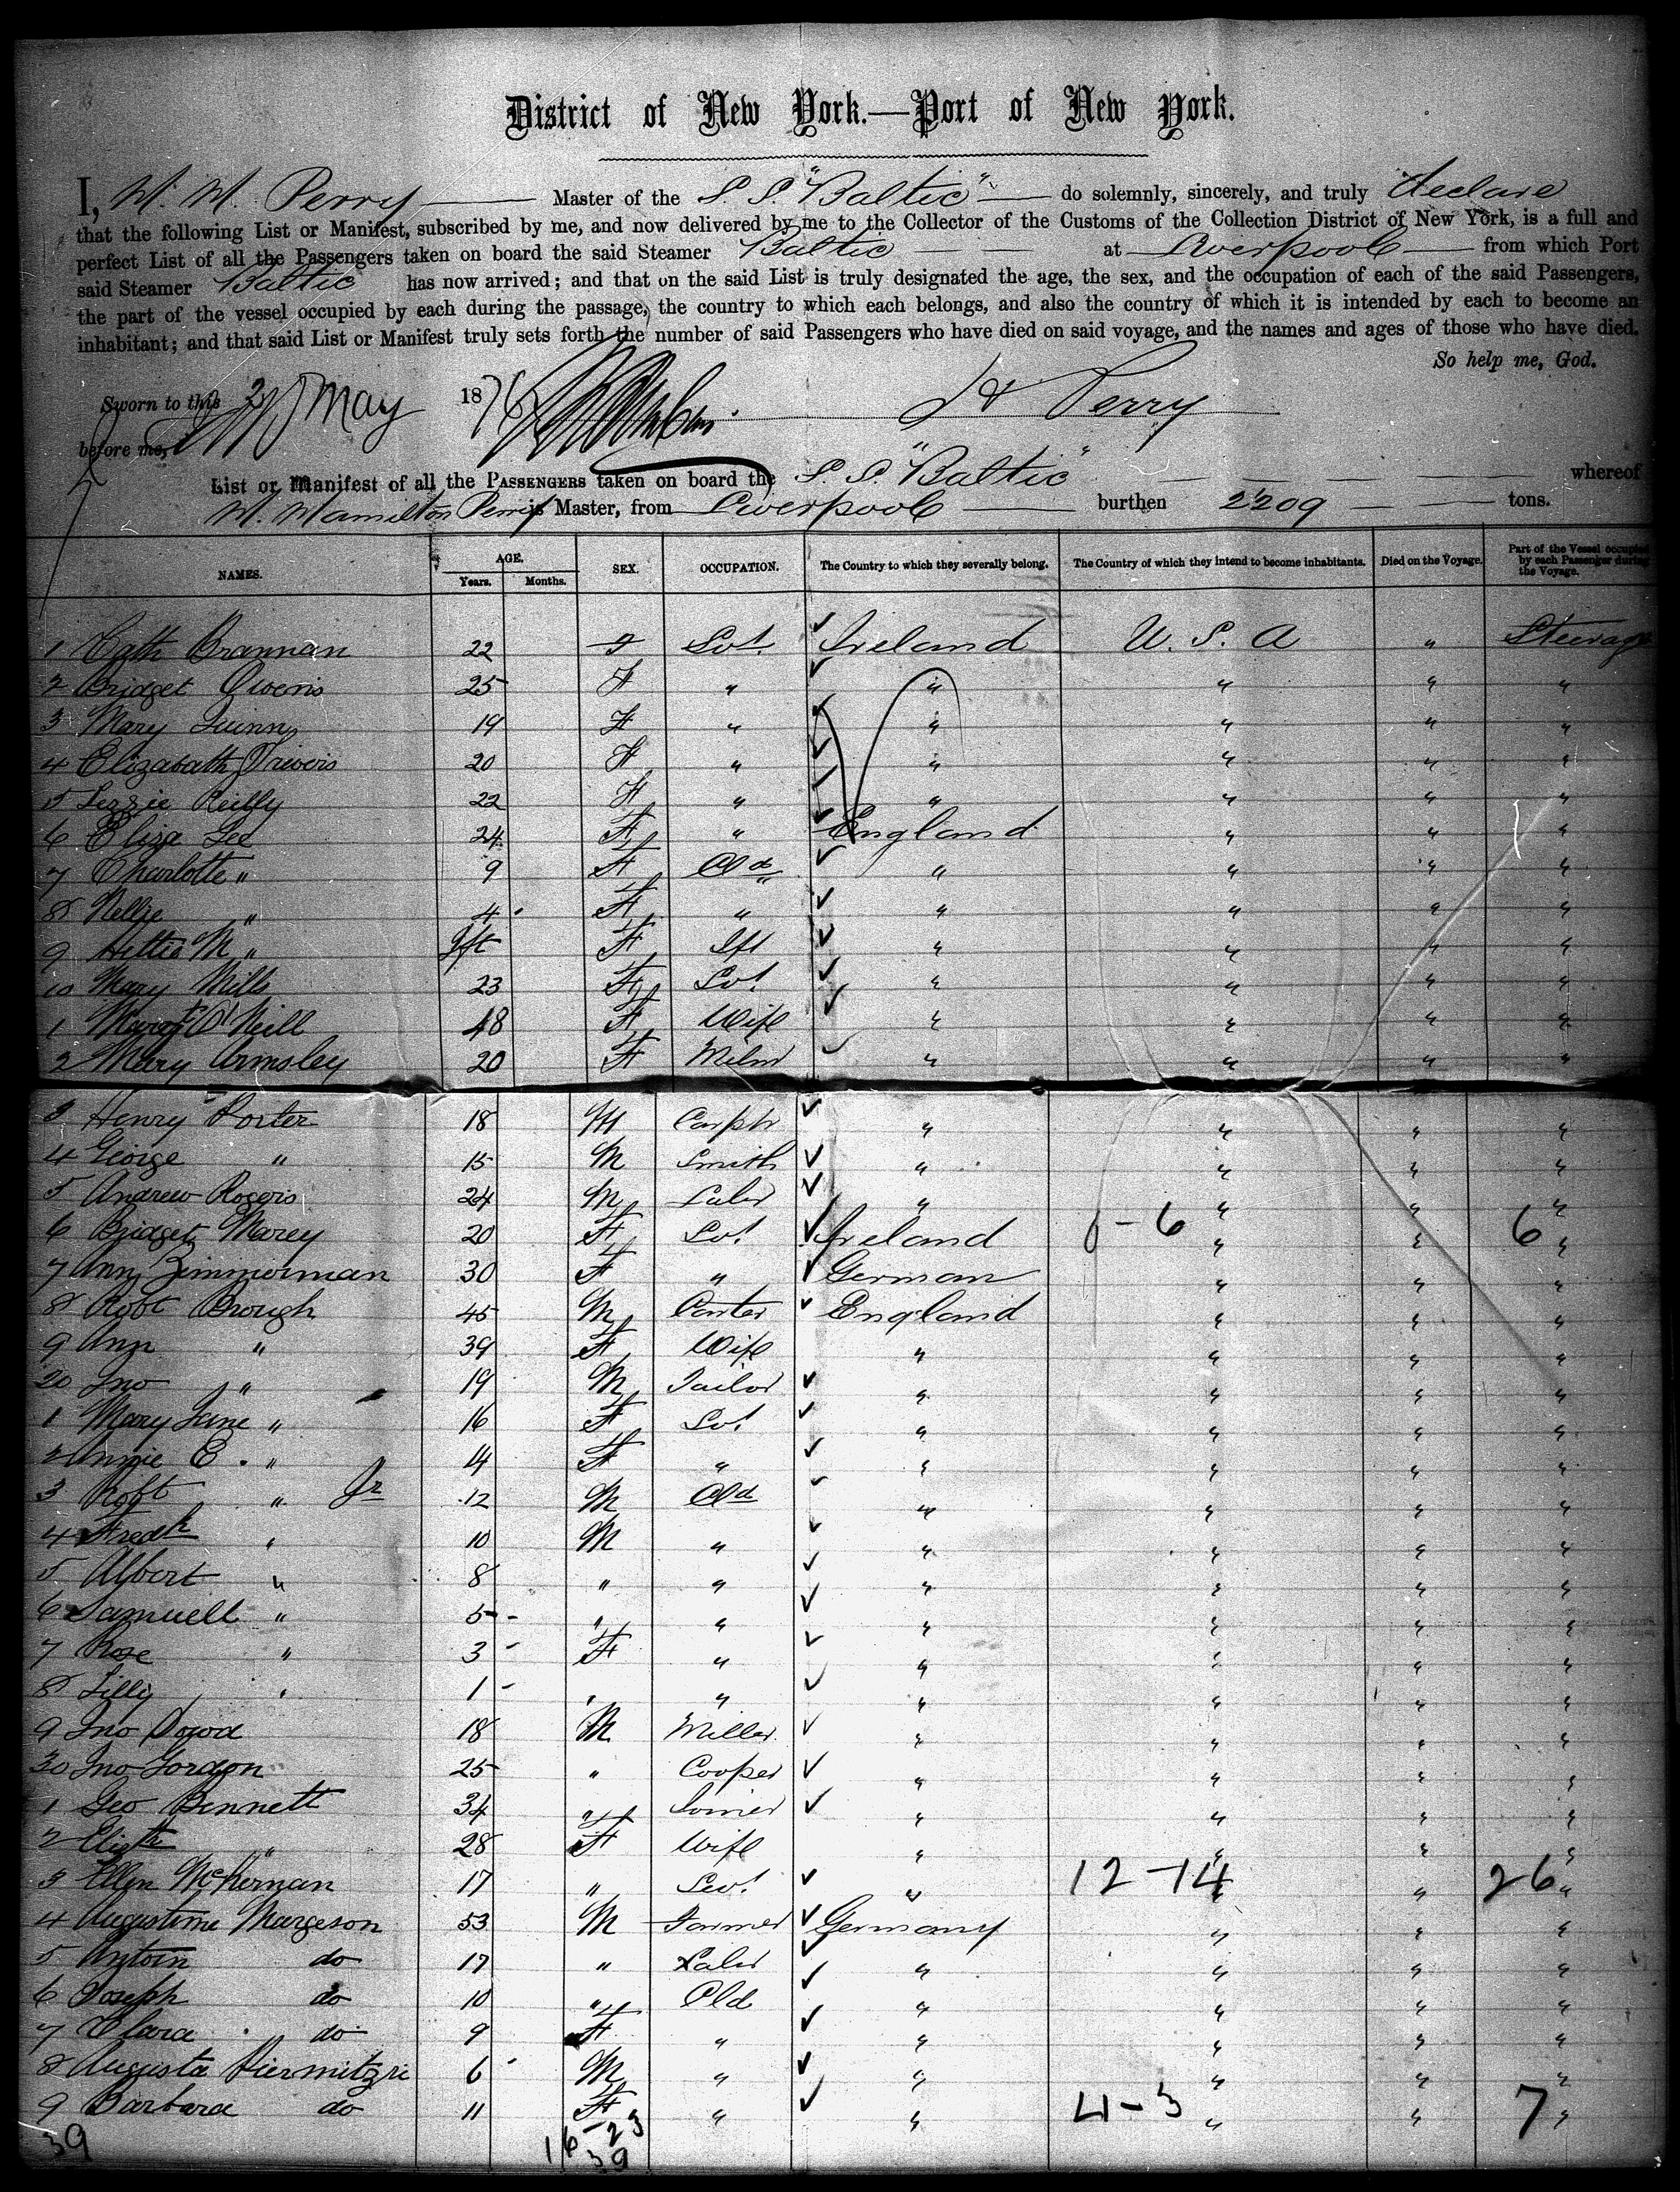 District of New York.—Port of New York.
I, W. W. Perry Master of the S. S. "Baltic" do solemnly, sincerely, and truly declare
that the following List or Manifest, subscribed by me, and now delivered by me to the Collector of the Customs of the Collection District of New York, is a full and
perfect List of all the Passengers taken on board the said Steamer Baltic at Liverpool from which Port
said Steamer Baltic has now arrived; and that on the said List is truly designated the age, the sex, and the occupation of each of the said Passengers,
the part of the vessel occupied by each during the passage, the country to which each belongs, and also the country of which it is intended by each to become an
inhabitant; and that said List or Manifest truly sets forth the number of said Passengers who have died on said voyage, and the names and ages of those who have died.
So help me, God.
Sworn to this May 1876 Perry
before me,
List or Manifest of all the PASSENGERS taken on board the S. S. "Baltic" whereof
Perry is Master, from Liverpool burthen 2209 tons.
NAMES. AGE. Years. Months. SEX. OCCUPATION. The Country to which they severally belong. The Country of which they intend to become inhabitants. Died on the Voyage. Part of the Vessel occupied by each Passenger during the Voyage.
1 Cath Brannan 22 F Svt Ireland U. S. A " Steerage
2 Bridget Owens 25 F " " " " "
3 Mary Quinn 19 F " " " " "
4 Elizabath 20 F " " " " "
5 Lizzie Reilly 22 F " " " " "
6 Eliza Lee 24 F " England " " "
7 Charlotte " 9 F Cld " " " "
8 Nellie " 4 F " " " " "
9 Hettie M " Ift F Ift " " " "
10 Mary Mills 23 F Svt " " " "
1 Margt O'Neill 48 F Wife " " " "
2 Mary Armsley 20 F Milnr " " " "
3 Henry Porter 18 M Carptr " " " "
4 George " 15 M Smith " " " "
5 Andrew Rogers 24 M Labr " " " "
6 Bridget Marey 20 F Svt Ireland 0-6 " " 6 "
7 Ann Zimmerman 30 F " German " " "
8 Robt Brough 45 M Carter England " " "
9 Ann " 39 F Wife " " " "
20 Jno " 19 M Tailor " " " "
1 Mary Jane " 16 F Svt " " " "
2 Annie E. " 14 F " " " " "
3 Robt " Jr 12 M Cld " " " "
4 Fredk " 10 M " " " " "
5 Albert " 8 " " " " " "
6 Samuell " 5 " " " " " "
7 Rose " 3 F " " " " "
8 Lilly " 1 " " " " " "
9 Jno Dowd 18 M Miller " " " "
30 Jno Gordon 25 " Cooper " " " "
1 Geo Bennett 34 " Joiner " " " "
2 Elizth " 28 F Wife " " " "
3 Ellen McKernan 17 " Sevt " 12-14 " " 26 "
4 Augustine Margeson 53 M Farmer Germany " " "
5 Antoin do 17 " Labr " " " "
6 Joseph do 10 " Cld " " " "
7 Clara do 9 F " " " " "
8 Augusta 6 M " " " " "
9 Barbara do 11 F " " 4-3 " " 7 "
39 16-23
39